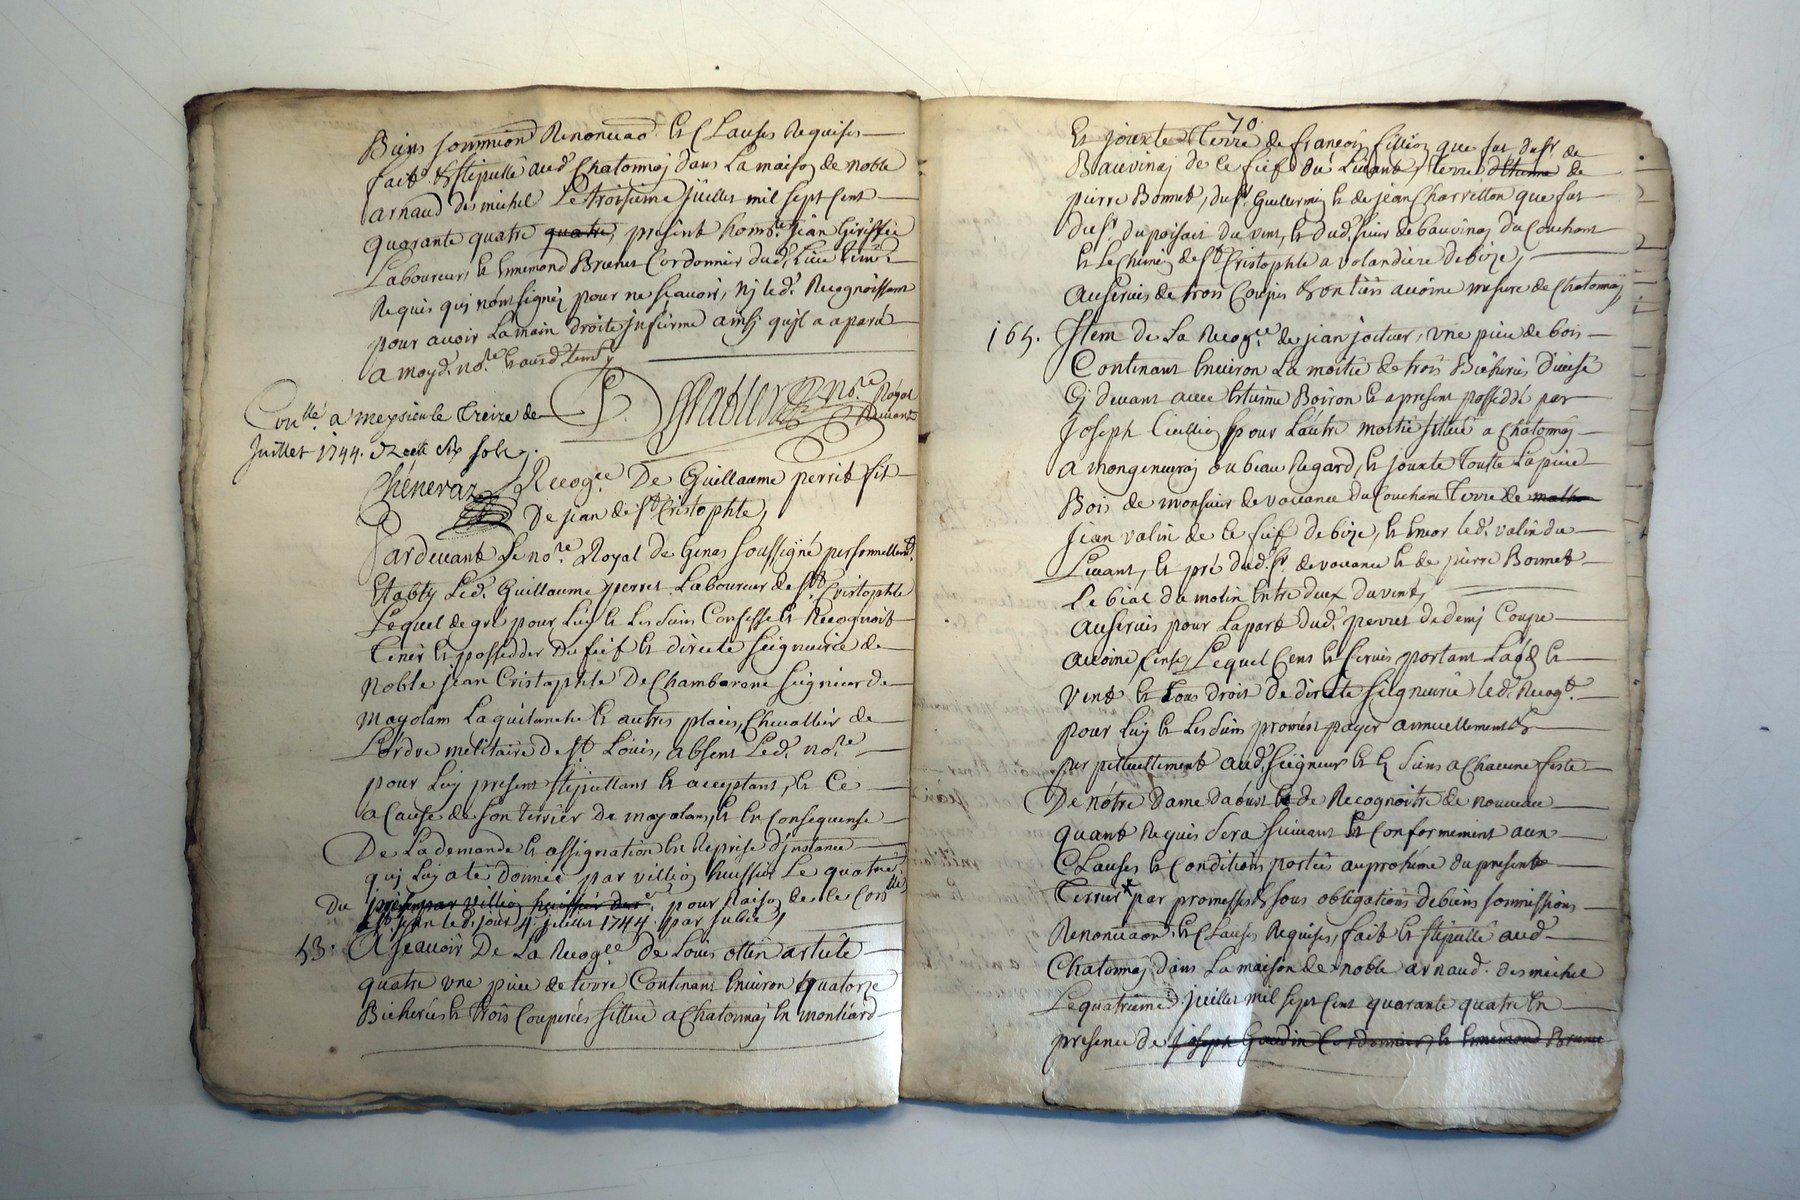 Biens sommission Renonciao.n et Clauses Requises
fait & stipullé aud. Chatonnaj dans La maison de noble
arnaud desmichel Le troisieme Juillet mil sept cent
quarante quatre quatre, present hom.e Jean
Laboureur, et Ennemond Brunet Cordonnier dud. Lieu
Requis qui nont signéz pour ne scavoir, nj led. Recognoissant
pour avoir La main droite Infirme ainsj quil a aparu
a moyd. no.re
no.re Royal
Con.lle a meyzieu le treize de
Juillet 1744. Recu six sols
Chéneraz
Recog.ce De Guillaume perret fil
De jean de S.t Cristophle,
Pardevant Le no.re Royal de Genas soussigné personnellem.t
Etably Led. Guillaume perret Laboureur de S.t Cristophle
Lequel de gré pour Luy et Les siens Confesse et Recognoit
tenir et possedder du fief et directe seigneurie de
noble jean Cristophle De Chambaran seigneur de
mayolam Laquilanche et autres places, Chevallier de
L'ordre melitaire de S.t Louis, absent Led. no.re
pour Luy present stipullant et acceptant, et Ce
a Cause de son terrier de mayolam, et En Consequense
De La demande et assignation En Reprise d'instance
quj Luy a eté donnée par villion huissier Le quatre
Du present par villion huissier pour Raison de ce Con.llé
led. jour 4. juillet 1744. par
53. A Scavoir De La Recog.ce de Louis ottin article
quatre une piece de terre Contenant Environ quatorze
Bicherées et trois Couperées sittuée a Chatonnaj En montiard
70.
Et jouxte terre de francois fillion que fut du S.r de
Bauvinaj de ce fief du Levant, terre de
pierre Bonnet, du S.r Guillermin et de jean Charvillon que fut
du S.r du poisat du vent, et dud. sieur de bauvinaj du Couchant
et Le Chemin de S.t Cristophle a volandiere de bize,
Au servis de trois Coupes & un tiers avoine mesure de Chatonnaj
165. Item de La Recog.ce de jean joctur, une piece de bois
Contenant Environ La moitié de trois Bicherées divisé
Cj devant avec Etienne Boiron et a present posseddé par
Joseph Cieillion pour L'autre moitié sittué a Chatonnaj
a mongeneuraj ou beau Regard, et jouxte touste La piece
Bois de monsieur de vavance du Couchant terre de
jean valin de ce fief de bize, et Encor led. valin du
Levant, et pré dud. S.r de vavance et de pierre Bonnet
Le bial du molin Entre deux du vent,
Au servis pour La part dud. perret de demj Coupe
avoine Cense, Lequel Cens et servis portant Laod et
vent et tous droit de directe seigneurie led. Recog.t
pour Luy et Les siens promest payer annuellement &
perpetuellement aud. seigneur et Es siens a Chacune feste
De nôtre dame daoust et de Recognoitre de nouveau
quant Requis sera suivant et Conformement aux
Clauses et Conditions portées au prohéme du present
Terrier* par promesses & sous obligations de biens sommissions
Renonciaon et Clauses Requises, fait et stipullé aud.
Chatonnaj dans La maison de noble arnaud desmichel
Le quatrieme juillet mil sept cent quarante quatre En
presence de joseph Gaudin Cordonnier, et Ennemond Brunet